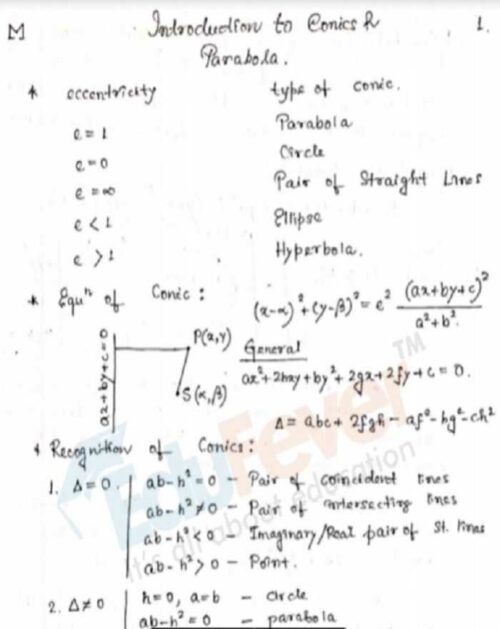 M Introduction to Conics & 1.
Parabola.
* eccentricity type of conic.
e = 1 Parabola
e = 0 Circle
e = ∞ Pair of Straight Lines
e < 1 Ellipse
e > 1 Hyperbola.
* Equⁿ of Conic : (x-α)²+(y-β)² = e² (ax+by+c)²/a²+b².
ax+by+c=0
P(x,y)
S(α,β)
General
ax²+2hxy+by²+2gx+2fy+c = 0.
Δ = abc + 2fgh - af² - bg² - ch²
* Recognition of Conics :
1. Δ=0. ab-h² = 0 - Pair of coincident lines
ab-h² ≠ 0 - Pair of intersecting lines
ab-h² < 0 - Imaginary/Real pair of St. lines
ab-h² > 0 - Point.
2. Δ≠0 h=0, a=b - circle
ab-h² = 0 - parabola
EduFever™
it's all about education